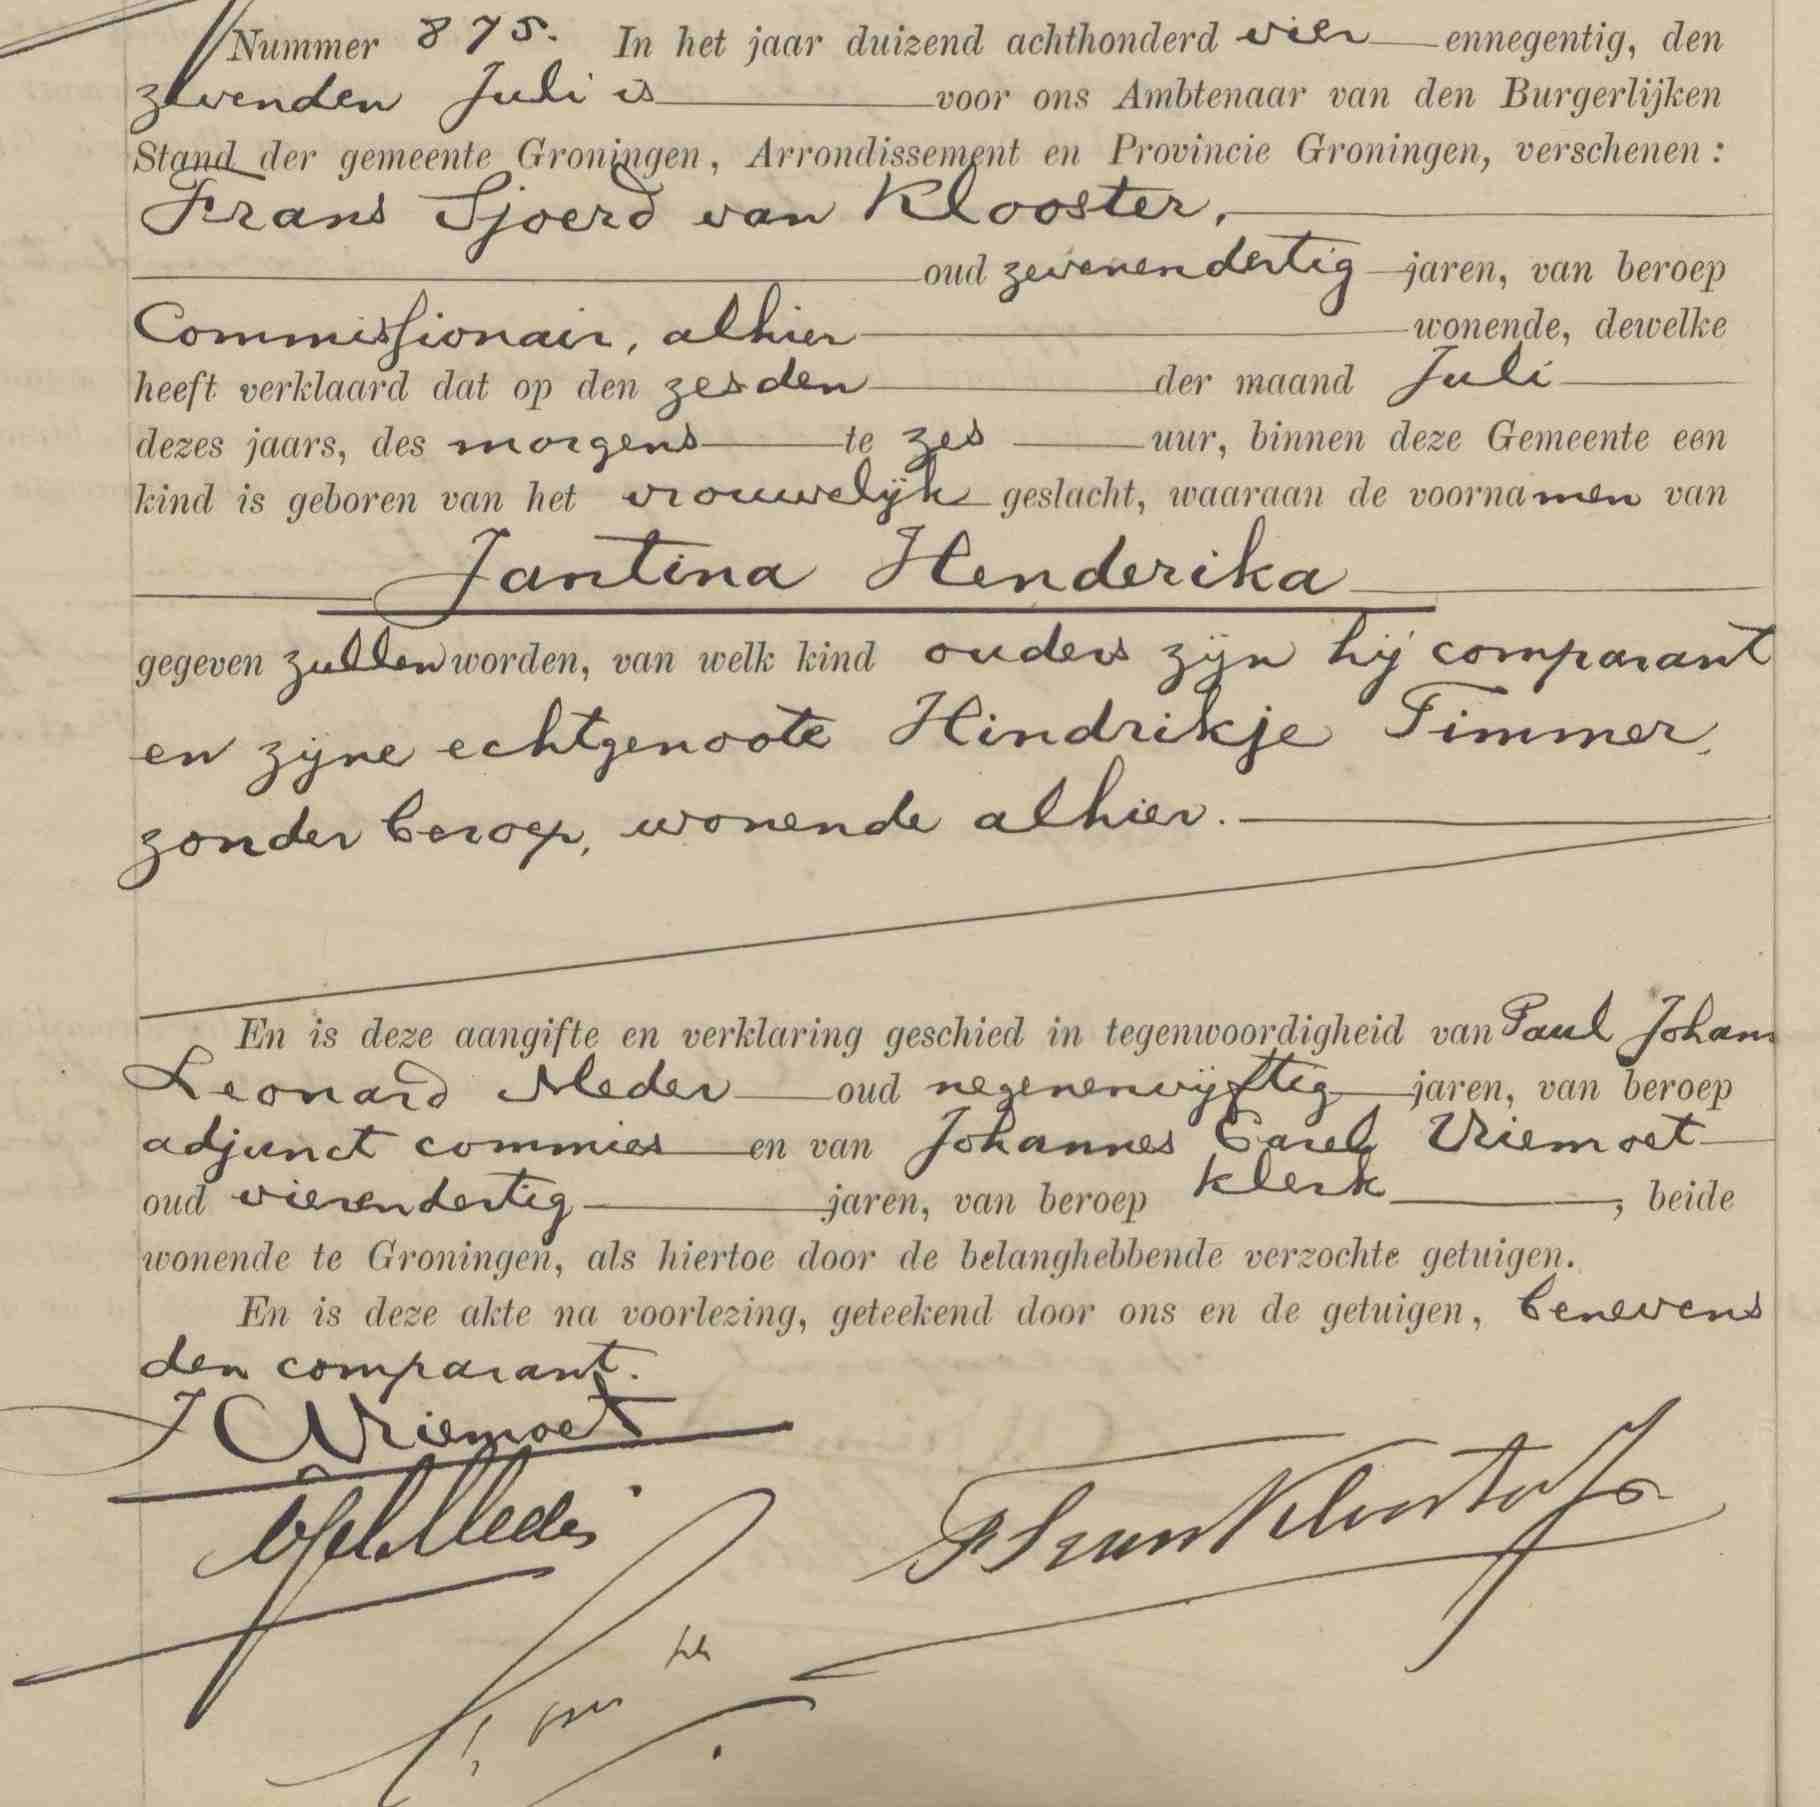 Nummer 875. In het jaar duizend achthonderd vier ennegentig, den
zevenden Juli is voor ons Ambtenaar van den Burgerlijken
Stand der gemeente Groningen, Arrondissement en Provincie Groningen, verschenen:
Frans Sjoerd van Klooster,
oud zevenendertig jaren, van beroep
Commissionair, alhier wonende, dewelke
heeft verklaard dat op den zesden der maand Juli
dezes jaars, des morgens te zes uur, binnen deze Gemeente een
kind is geboren van het vrouwelijk geslacht, waaraan de voornamen van
Jantina Henderika
gegeven zullen worden, van welk kind ouders zijn hij comparant
en zijne echtgenoote Hindrikje Timmer,
zonder beroep, wonende alhier.
En is deze aangifte en verklaring geschied in tegenwoordigheid van Paul Johan
Leonard Meder oud negenenvijftig jaren, van beroep
adjunct commies en van Johannes Carel Vriemoet
oud vierendertig jaren, van beroep klerk, beide
wonende te Groningen, als hiertoe door de belanghebbende verzochte getuigen.
En is deze akte na voorlezing, geteekend door ons en de getuigen, benevens
den comparant.
J C Vriemoet
Meder
F S van Klooster